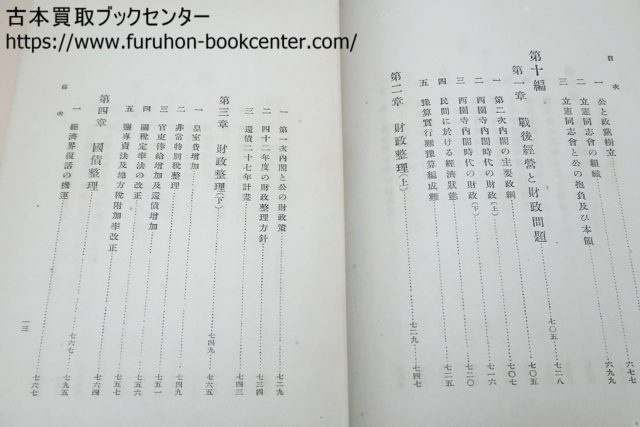 古本買取ブックセンター
https://www.furuhon-bookcenter.com/
目次
一 公と政黨樹立……六七七
二 立憲同志會の組織
三 立憲同志會と公の抱負及び本領……六九九
第十編
第一章 戰後經營と財政問題……七〇五―七二八
一 第二次內閣の主要政綱……七〇五
二 西園寺內閣時代の財政(上)……七〇七
三 西園寺內閣時代の財政(下)……七一六
四 民間に於ける經濟狀態……七二五
五 豫算實行難豫算編成難
第二章 財政整理(上)……七二九―七四七
一 第一次內閣と公の財政策……七二九
二 四十二年度の財政整理方針……七三四
三 還債二十七年計畫……七四三
第三章 財政整理(下)……七四九―七六五
一 皇室費增加
二 非常特別稅整理……七四九
三 官吏俸給增加及還債增加……七五一
四 關稅定率法の改正……七五六
五 鹽專賣法及地方稅附加率改正……七五七
第四章 國債整理……七六七―七九五
一 經濟界復活の機運……七六七
目次
一三